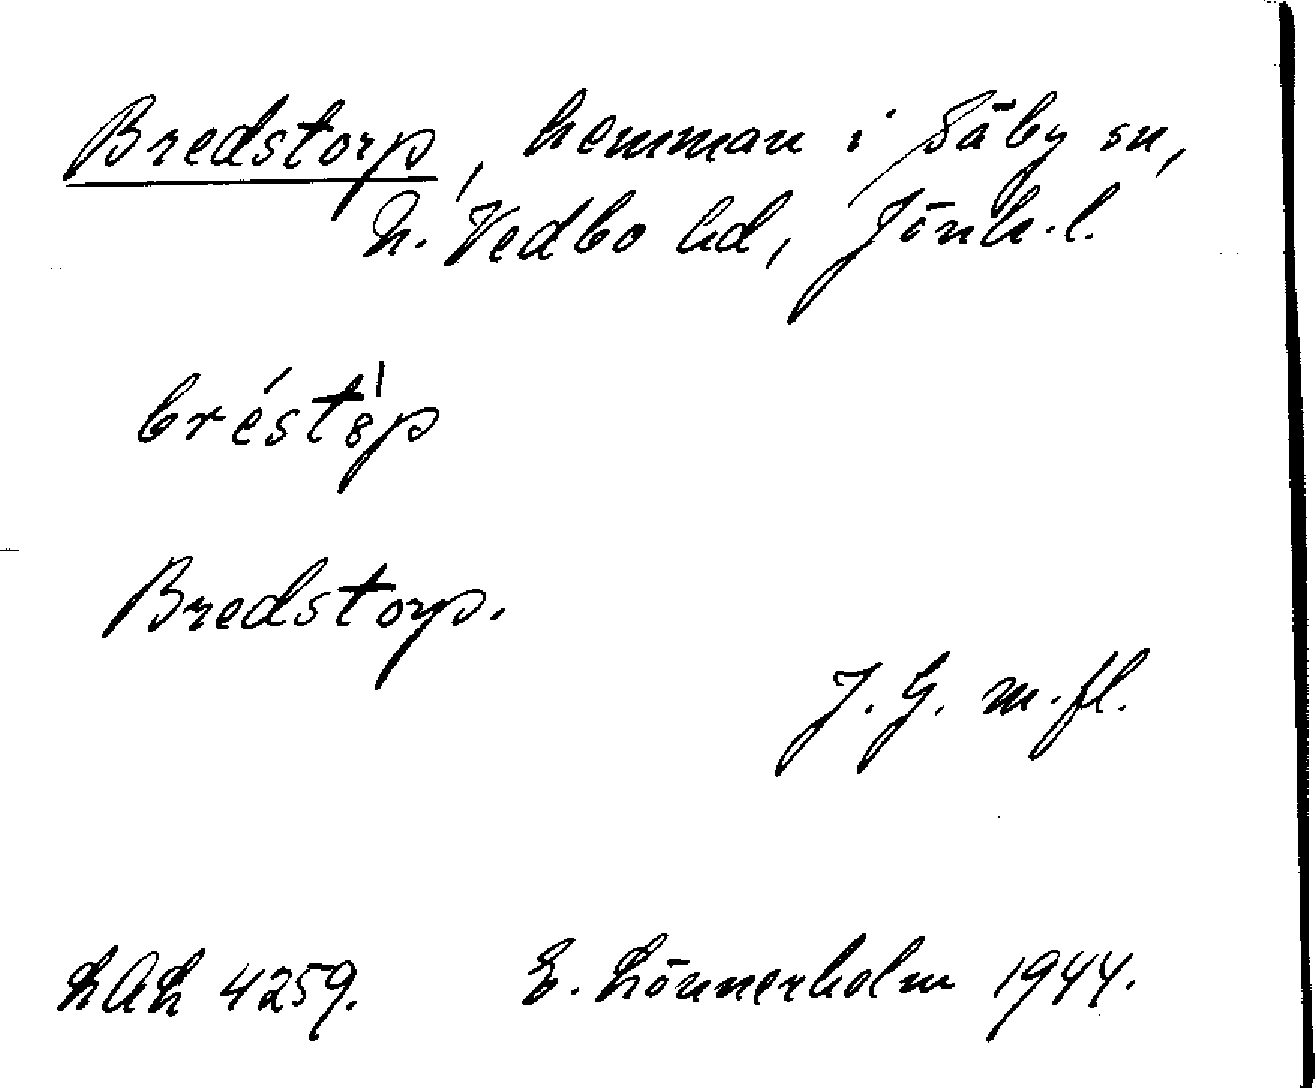 Bredstorp, hemman i Säby sn,
N. Vedbo hd, Jönk. l.
Bredstorp.
J. G. m. fl.
4259. E. Lönnerholm 1944.